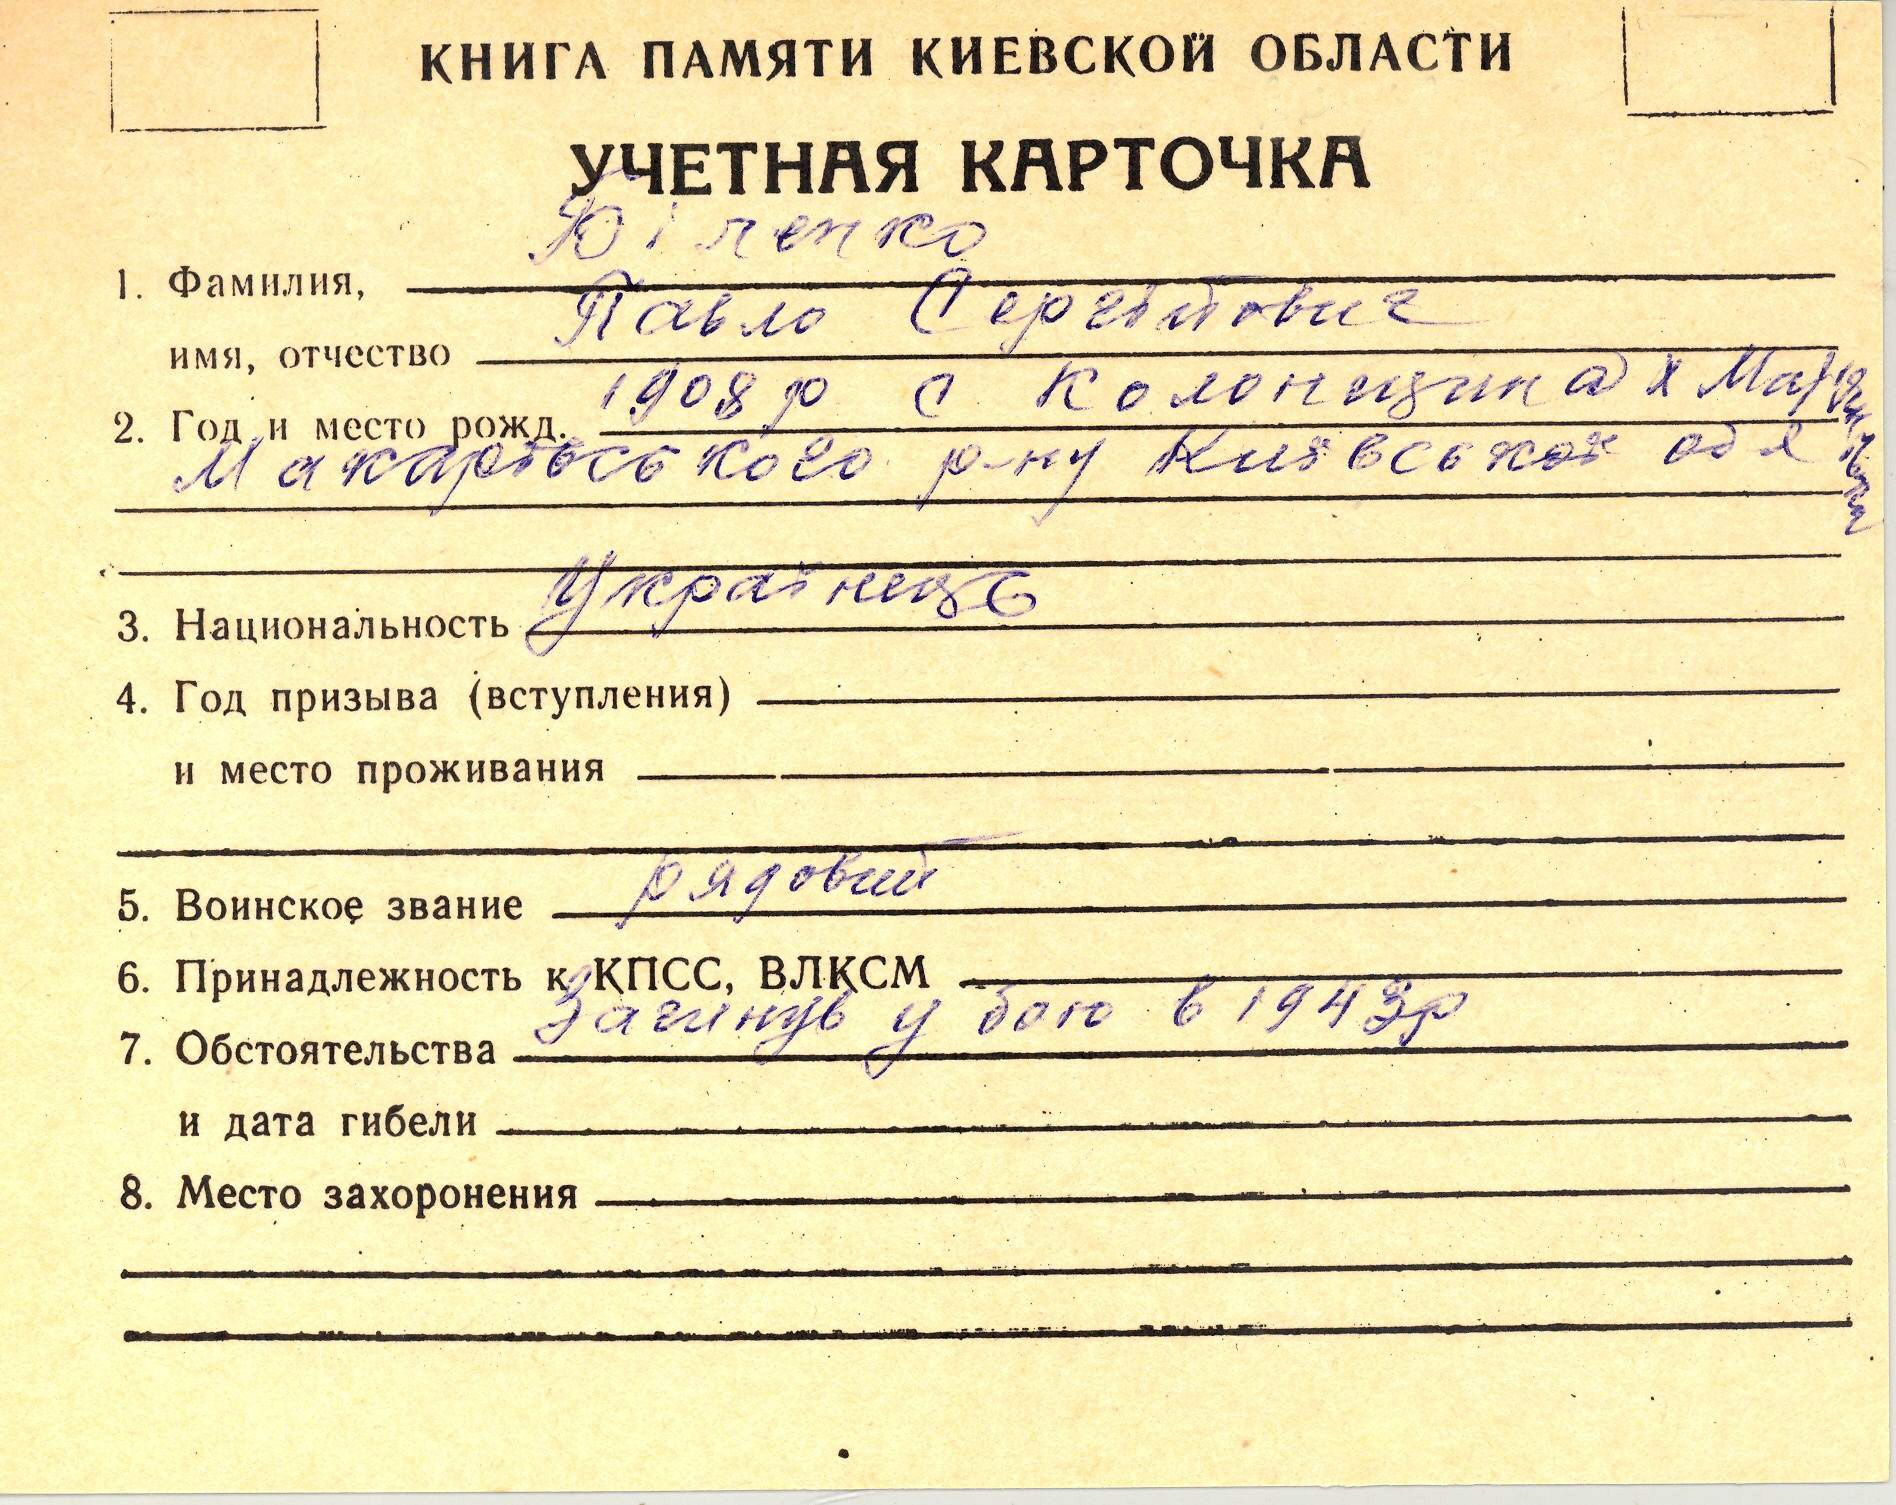 КНИГА ПАМЯТИ КИЕВСКОЙ ОБЛАСТИ
УЧЕТНАЯ КАРТОЧКА
Біленко
1. Фамилия,
Павло Сергійович
имя, отчество
1908 р с Колонщина х
2. Год и место рожд.
Макарівського р-ну Київської обл
Українець
3. Национальность
4. Год призыва (вступления)
и место проживания
рядовий
5. Воинское звание
6. Принадлежность к КПСС, ВЛКСМ
Загинув у бою в 1943р
7. Обстоятельства
и дата гибели
8. Место захоронения